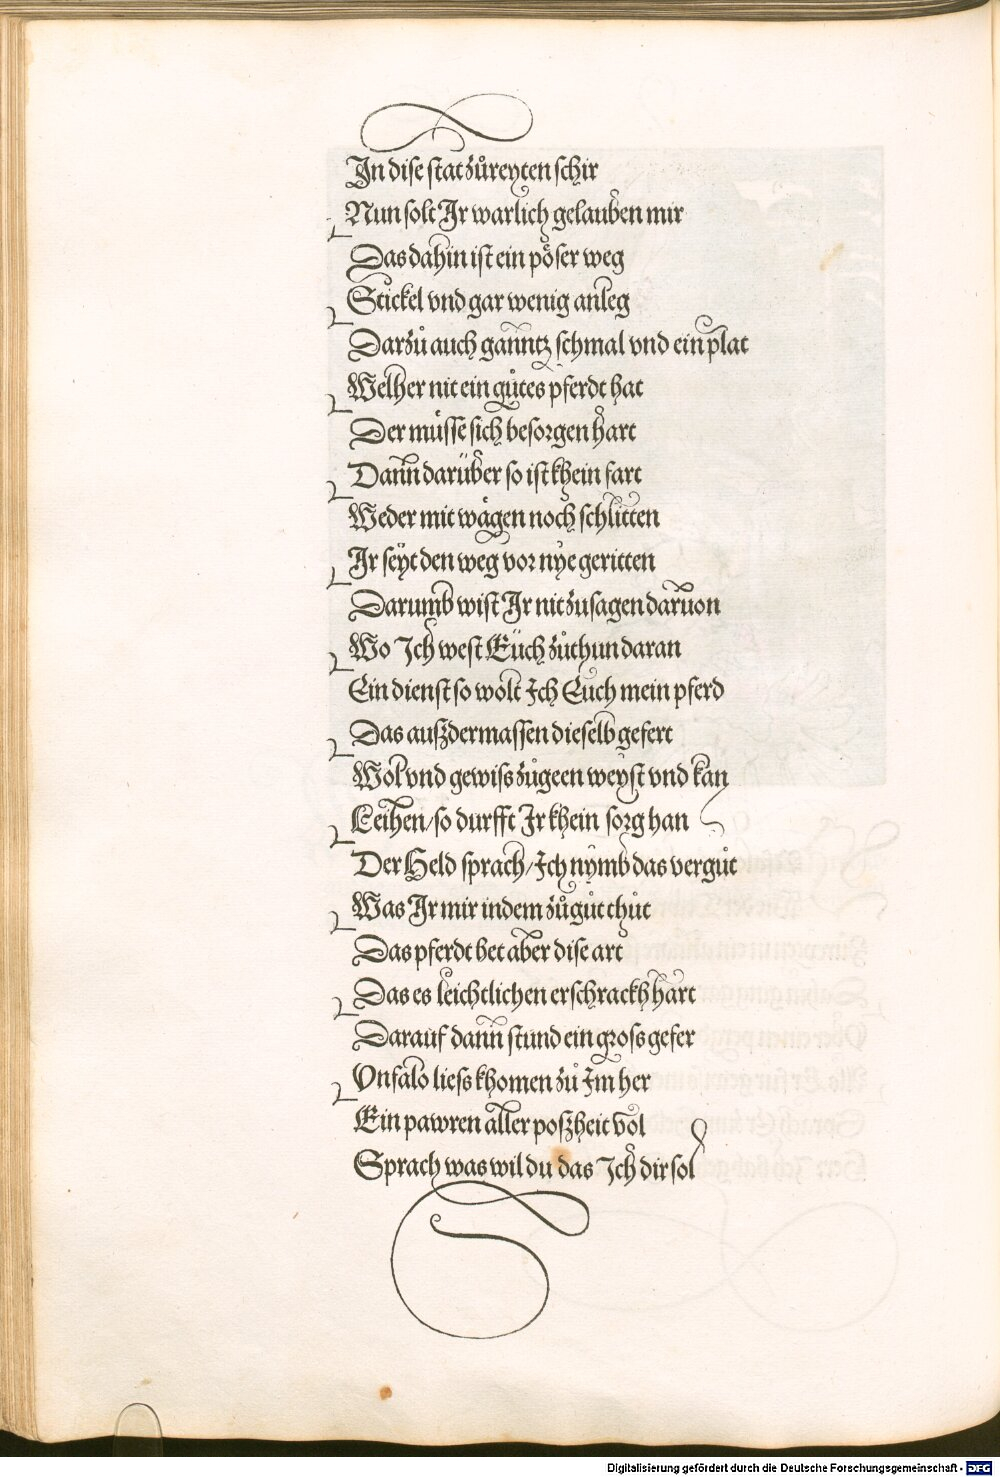 In dise stat zůreyten schir
Nun solt Ir warlich gelauben mir
Das dahin ist ein pöser weg
Stickel vnd gar wenig anleg
Darzů auch ganntz schmal vnd ein plat
Welher nit ein gůtes pferdt hat
Der müsse sich besorgen hart
Dann darüber so ist khein fart
Weder mit wägen noch schlitten
Ir seyt den weg vor nye geritten
Darumb wist Ir nit zusagen daruon
Wo Ich west Eüch zůthun daran
Ein dienst so wolt Ich Euch mein pferd
Das auszdermassen dieselb gefert
Wol vnd gewiss zůgeen weyst vnd kan
Leihen/so durfft Ir khein sorg han
Der Held sprach/Ich nymb das vergůt
Was Ir mir indem zůgůt thůt
Das pferdt het aber dise art
Das es leichtlichen erschrackh hart
Darauf dann stund ein gross gefer
Vnfalo liess khomen zů Im her
Ein pawren aller poszheit vol
Sprach was wil du das Ich dir sol
Digitalisierung gefördert durch die Deutsche Forschungsgemeinschaft - DFG